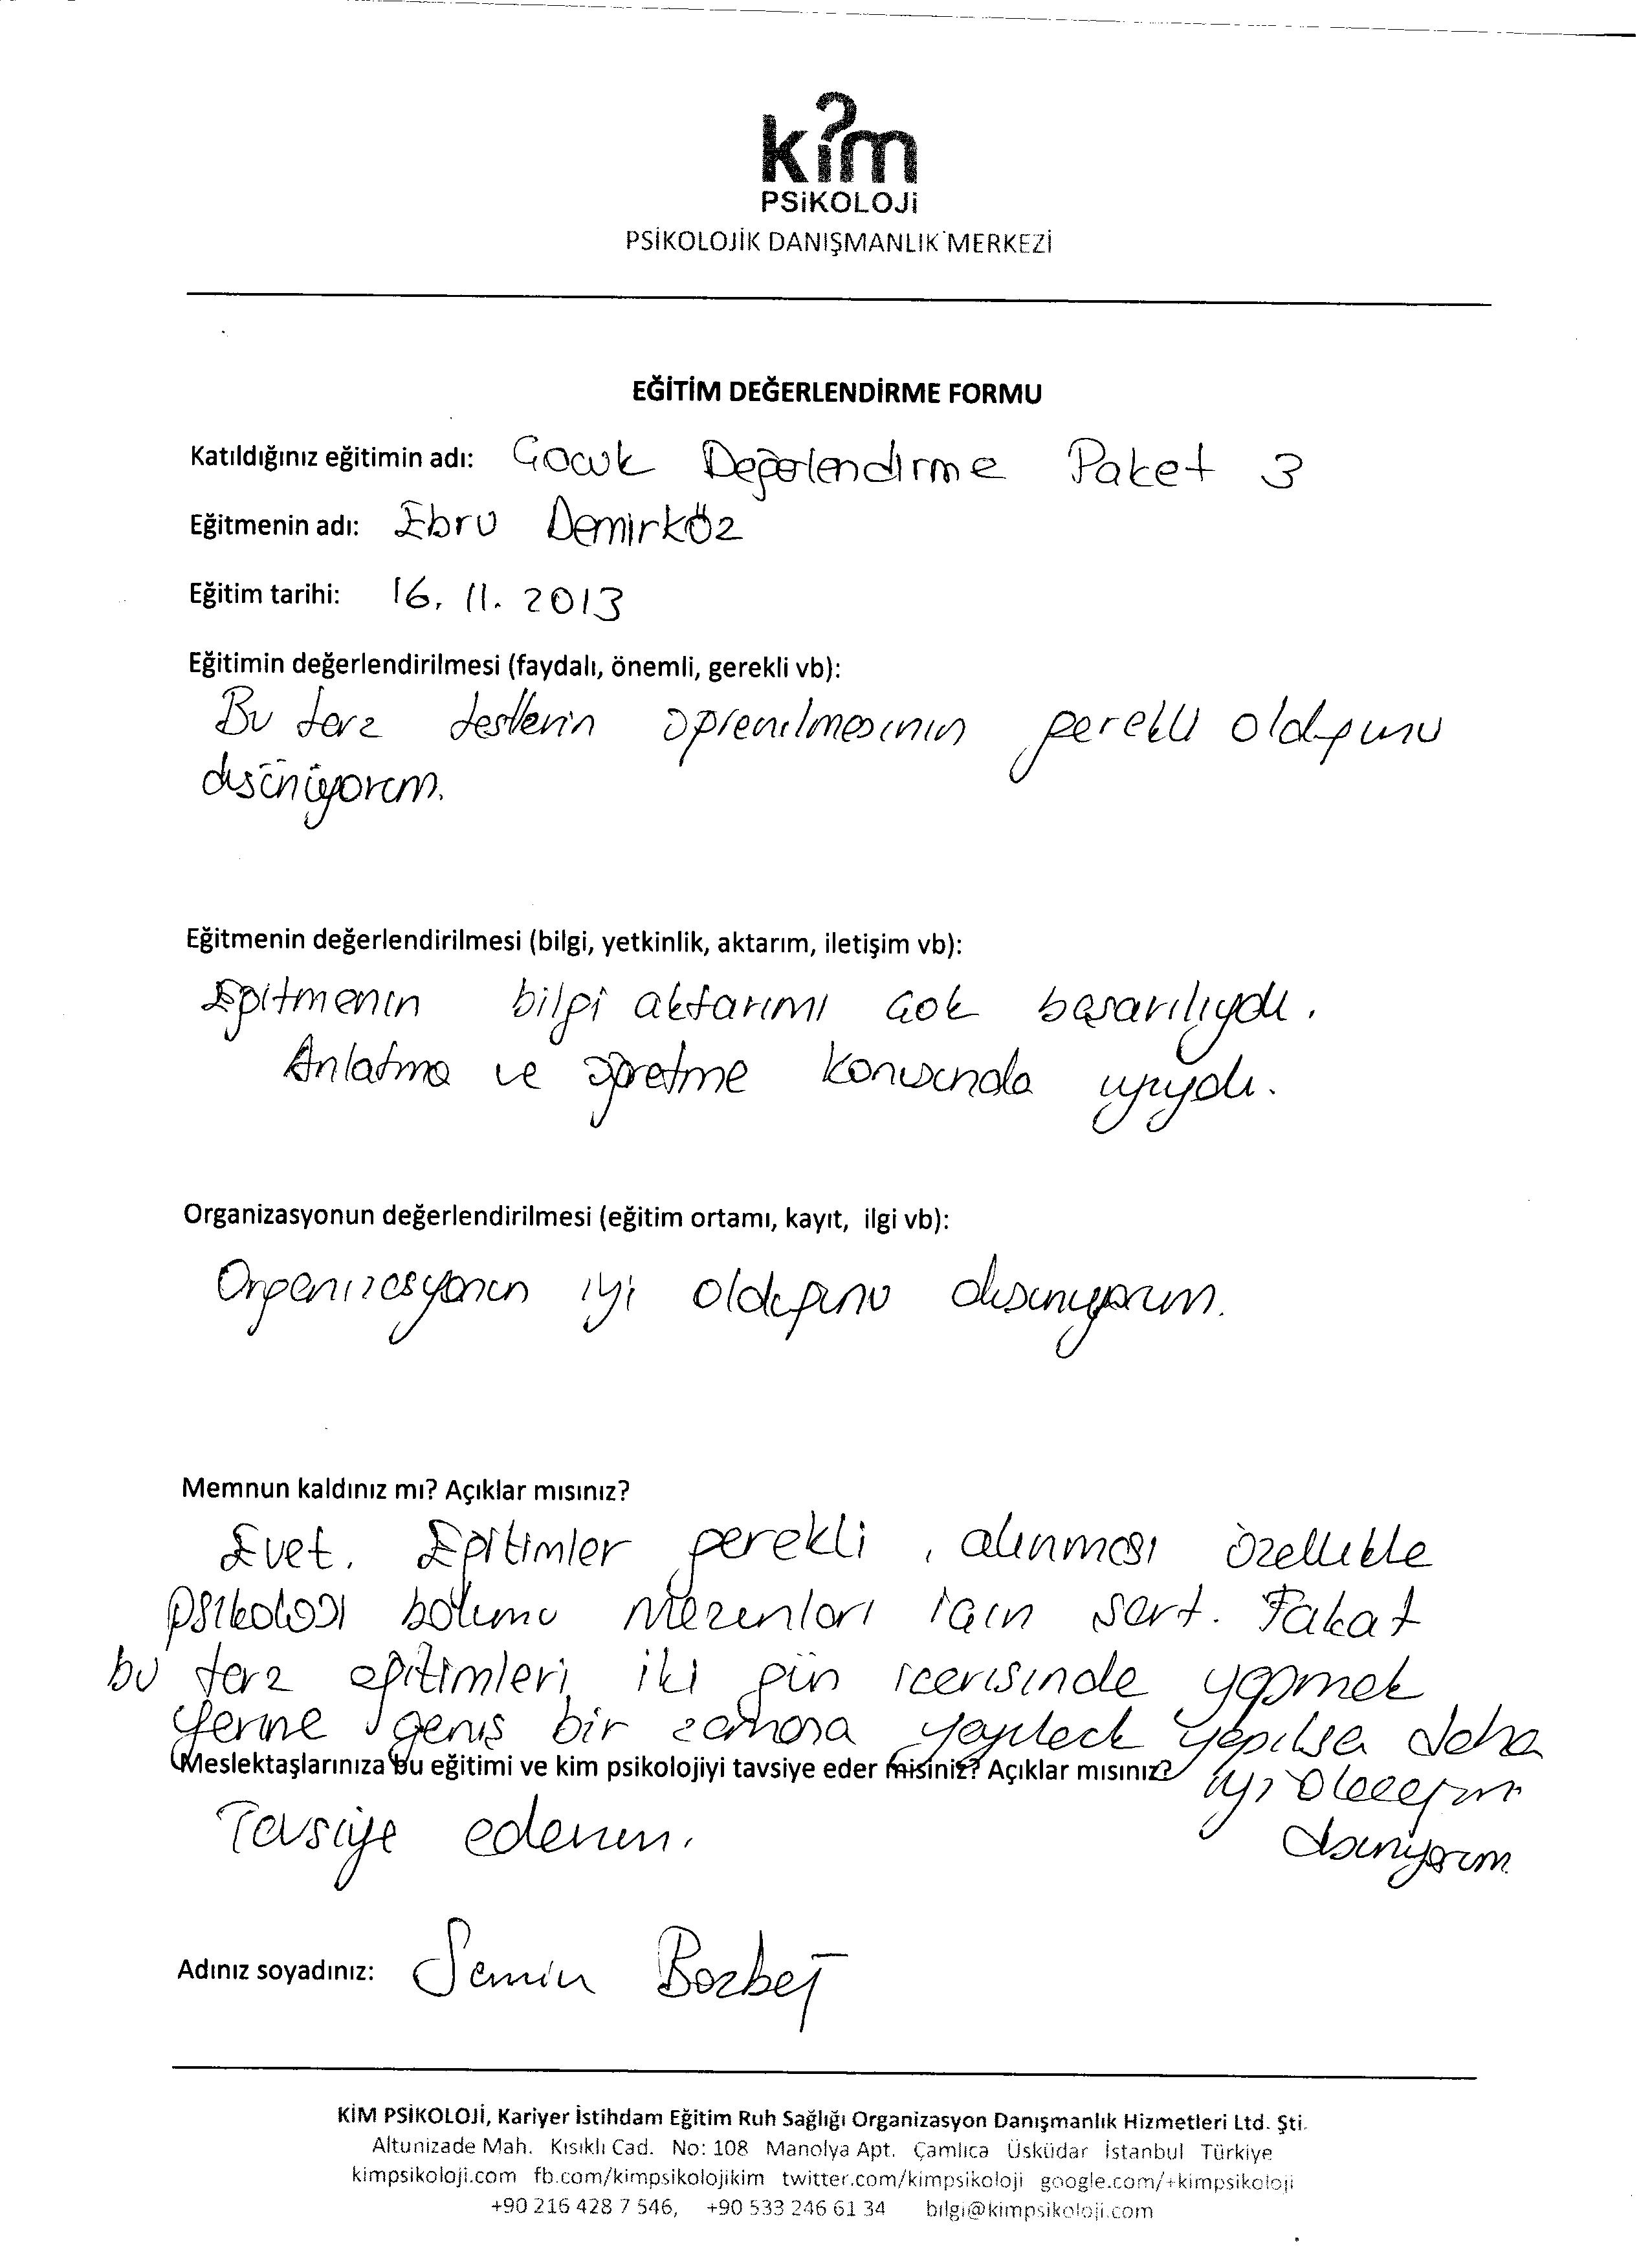 kim
PSiKOLOJi
PSİKOLOJİK DANIŞMANLIK MERKEZİ
EĞİTİM DEĞERLENDİRME FORMU
Katıldığınız eğitimin adı: Çocuk Değerlendirme Paket 3
Eğitmenin adı: Ebru Demirköz
Eğitim tarihi: 16. 11. 2013
Eğitimin değerlendirilmesi (faydalı, önemli, gerekli vb):
Bu tarz testlerin öğrenilmesinin gerekli olduğunu
düşünüyorum.
Eğitmenin değerlendirilmesi (bilgi, yetkinlik, aktarım, iletişim vb):
Eğitmenin bilgi aktarımı çok başarılıydı.
Anlatma ve öğretme konusunda iyiydi.
Organizasyonun değerlendirilmesi (eğitim ortamı, kayıt, ilgi vb):
Organizasyonun iyi olduğunu düşünüyorum.
Memnun kaldınız mı? Açıklar mısınız?
Evet. Eğitimler gerekli, alınması özellikle
psikoloji bölümü mezunları için şart. Fakat
bu tarz eğitimleri iki gün içerisinde yapmak
yerine geniş bir zamana yayılarak yapılsa daha
iyi olacağını
düşünüyorum
Meslektaşlarınıza bu eğitimi ve kim psikolojiyi tavsiye eder misiniz? Açıklar mısınız?
Tavsiye ederim.
Adınız soyadınız: Semin
KİM PSİKOLOJİ, Kariyer İstihdam Eğitim Ruh Sağlığı Organizasyon Danışmanlık Hizmetleri Ltd. Şti.
Altunizade Mah. Kısıklı Cad. No: 108 Manolya Apt. Çamlıca Üsküdar İstanbul Türkiye
kimpsikoloji.com fb.com/kimpsikolojikim twitter.com/kimpsikoloji google.com/+kimpsikoloji
+90 216 428 7 546, +90 533 246 61 34 bilgi@kimpsikoloji.com